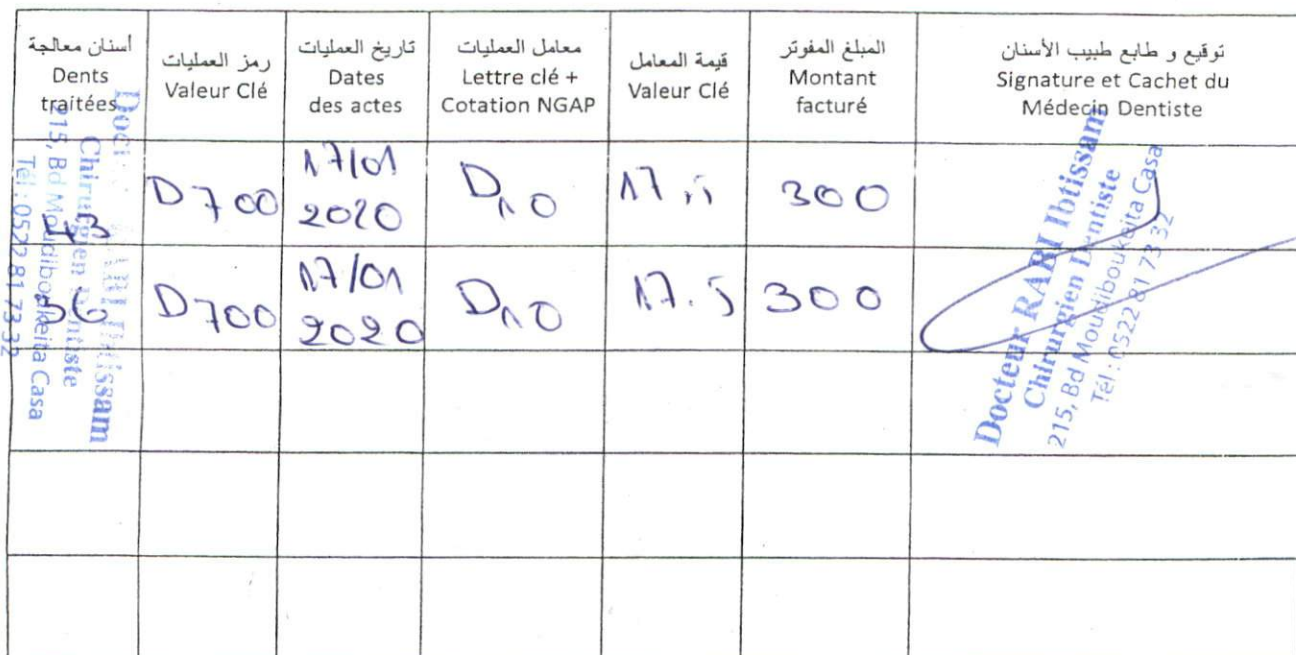 أسنان معالجة
Dents
traitées
رمز العمليات
Valeur Clé
تاريخ العمليات
Dates
des actes
معامل العمليات
Lettre clé +
Cotation NGAP
قيمة المعامل
Valeur Clé
المبلغ المفوتر
Montant
facturé
توقيع و طابع طبيب الأسنان
Signature et Cachet du
Médecin Dentiste
D700
17/01
2020
D10
300
36
D700
17/01
2020
D10
17.5
300
RABI Ibtissam
Chirurgien Dentiste
215, Bd Moudiboukeita Casa
Tél : 0522 81 73 32
Docteur RABI Ibtissam
Chirurgien Dentiste
215, Bd Moudiboukeita Casa
Tél : 0522 81 73 32